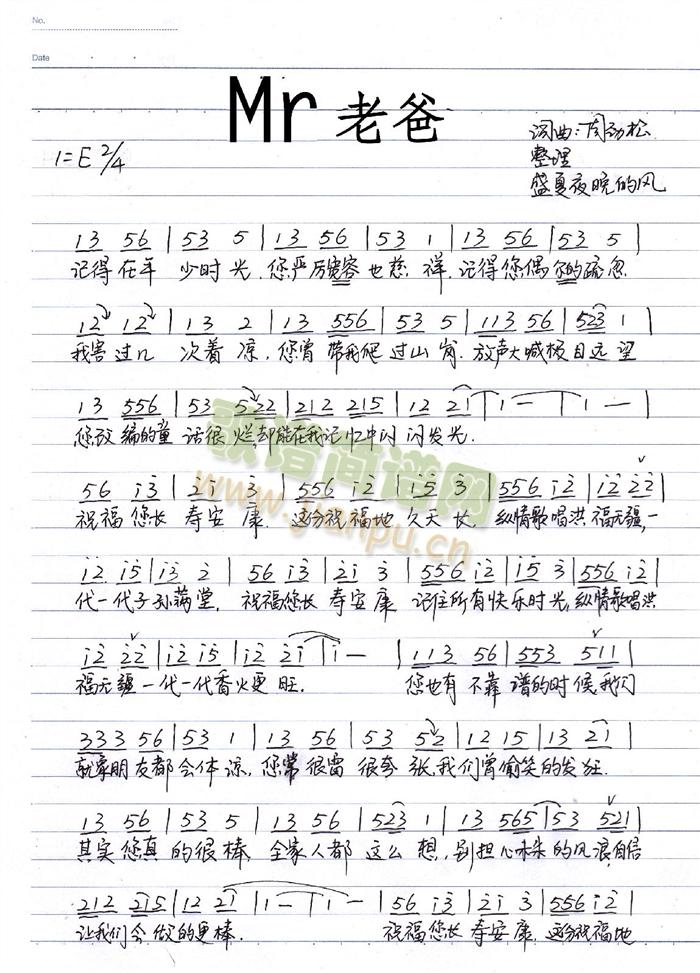 No.
Date
Mr 老爸
词曲:周劲松
1=E 2/4
整理
盛夏夜晚的风
13 56 | 53 5 | 13 56 | 53 1 | 13 56 | 53 5 |
记得在年 少时光.您严厉宽容也慈.祥.记得您偶尔的疏忽
12 12 | 13 2 | 13 556 | 53 5 | 113 56 | 523 1 |
我害过几 次着凉,您曾带我爬过山岗.放声大喊极目远望
13 556 | 53 522 | 212 215 | 12 21 | 1 — | 1 — |
您改编的童话很烂,却能在我记忆中闪闪发光.
56 i3 | 2i 3 | 556 i2 | i5 3 | 556 i2 | i2 22 |
祝福您长寿安康.这份祝福地久天长.纵情歌唱洪福无疆,一
i2 i5 | i3 2 | 56 i3 | 2i 3 | 556 i2 | i5 3 | 556 i2 |
代一代子孙满堂.祝福您长寿安康 记住所有快乐时光,纵情歌唱洪
i2 22 | i2 i5 | i2 2i | i — | 113 56 | 553 511 |
福无疆一代一代香火更旺. 您也有不靠谱的时候,我们
333 56 | 53 1 | 13 56 | 53 52 | 12 15 | 13 21 |
就象朋友都会体谅,您常很雷很夸张,我们曾偷笑的发狂.
13 56 | 53 5 | 13 56 | 523 1 | 13 565 | 53 521 |
其实您真的很棒 全家人都这么想,别担心未来的风浪,自信
212 215 | 12 21 | 1 — | 1 — | 56 i3 | 2i 3 | 556 i2 |
让我们会做的更棒. 祝福您长寿安康.这份祝福地
歌谱简谱网
www.jianpu.cn